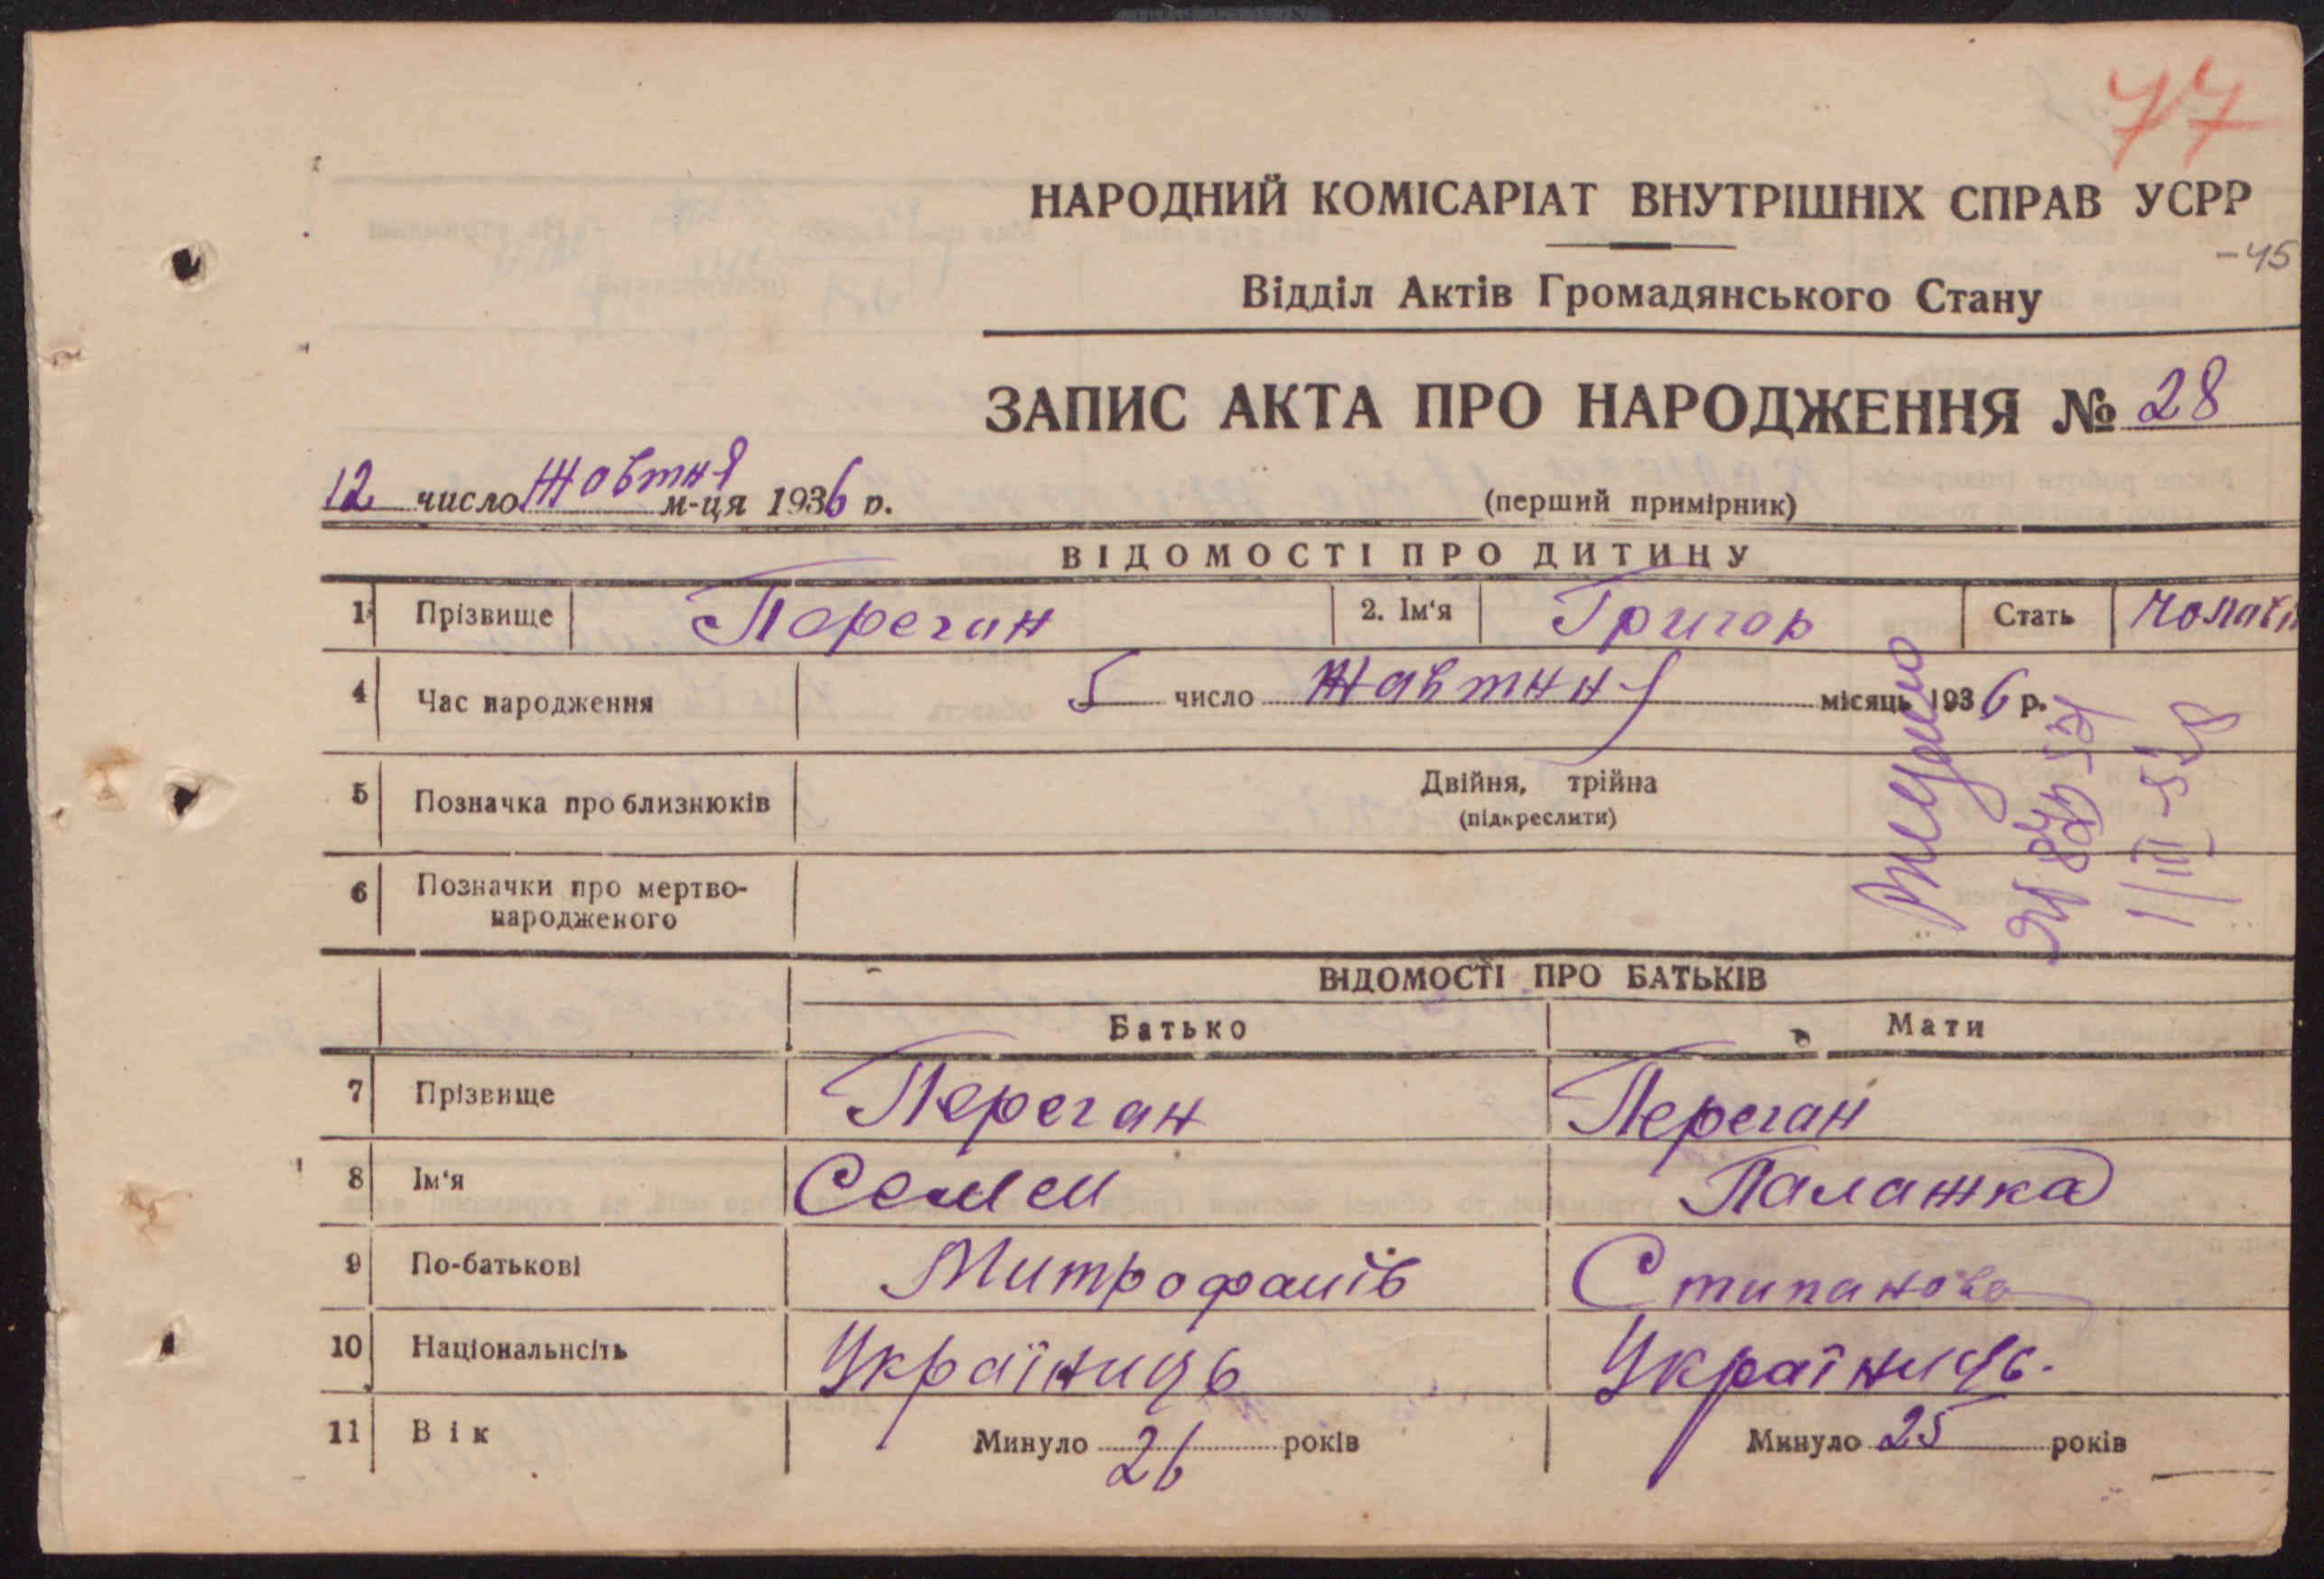 77
НАРОДНИЙ КОМІСАРІАТ ВНУТРІШНІХ СПРАВ УСРР
-45
Відділ Актів Громадянського Стану
ЗАПИС АКТА ПРО НАРОДЖЕННЯ № 28
12 число Жовтня м-ця 1936 р.
(перший примірник)
ВІДОМОСТІ ПРО ДИТИНУ
1 Прізвище Переган 2. Ім'я Григор Стать
4 Час народження 5 число Жавтня місяць 1936 р.
5 Позначка про близнюків Двійня, трійна
(підкреслити)
6 Позначки про мертво-
народженого
1/III-58
ВІДОМОСТІ ПРО БАТЬКІВ
Батько Мати
7 Прізвище Переган Переган
8 Ім'я Семен Палажка
9 По-батькові Митрофанів Стипанова
10 Національнсіть Україниць Україниць.
11 Вік Минуло 26 років Минуло 25 років